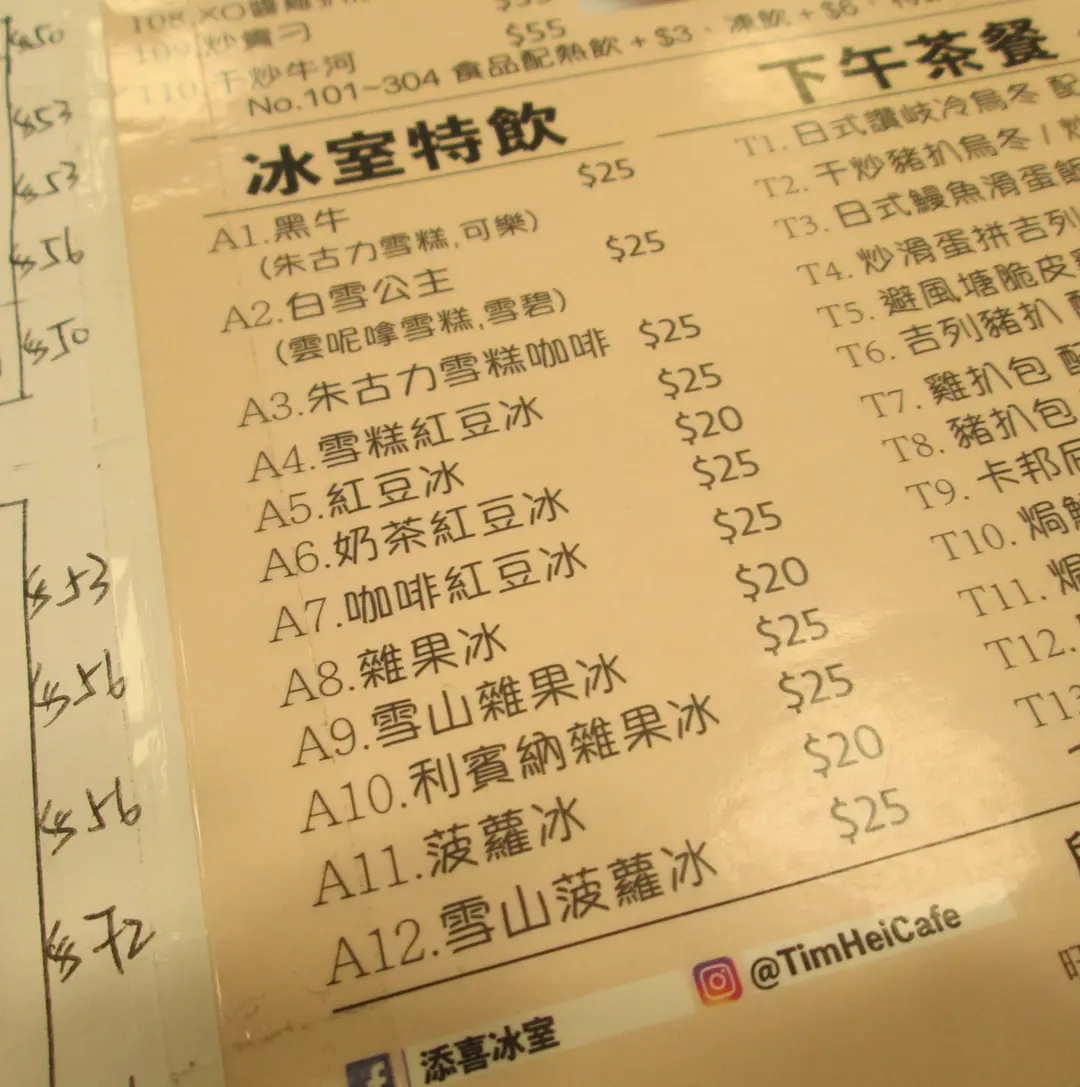 $50
$53
$53
$56
$50
$53
$56
$56
$72
108.XO醬雞
109.炒貴刁 $55
110.干炒牛河
No.101~304 食品配熱飲+$3、凍飲+$6、
冰室特飲
A1.黑牛 $25
(朱古力雪糕,可樂)
A2.白雪公主 $25
(雲呢拿雪糕,雪碧)
A3.朱古力雪糕咖啡 $25
A4.雪糕紅豆冰 $25
A5.紅豆冰 $20
A6.奶茶紅豆冰 $25
A7.咖啡紅豆冰 $25
A8.雜果冰 $20
A9.雪山雜果冰 $25
A10.利賓納雜果冰 $25
A11.菠蘿冰 $20
A12.雪山菠蘿冰 $25
下午茶餐
T1.日式讚岐冷烏冬 配
T2.干炒豬扒烏冬/炒
T3.日式鰻魚滑蛋飯
T4.炒滑蛋拼吉列
T5.避風塘脆皮
T6.吉列豬扒 配
T7.雞扒包 配
T8.豬扒包
T9.卡邦尼
T10.焗鮮
T11.焗
T12.
T13
@TimHeiCafe
添喜冰室